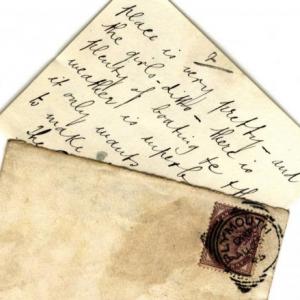 2
place is very pretty - and
the girls - ditto - there is
plenty of boating to th
weather is superb
it only wants
to make
The
PLYMOUTH